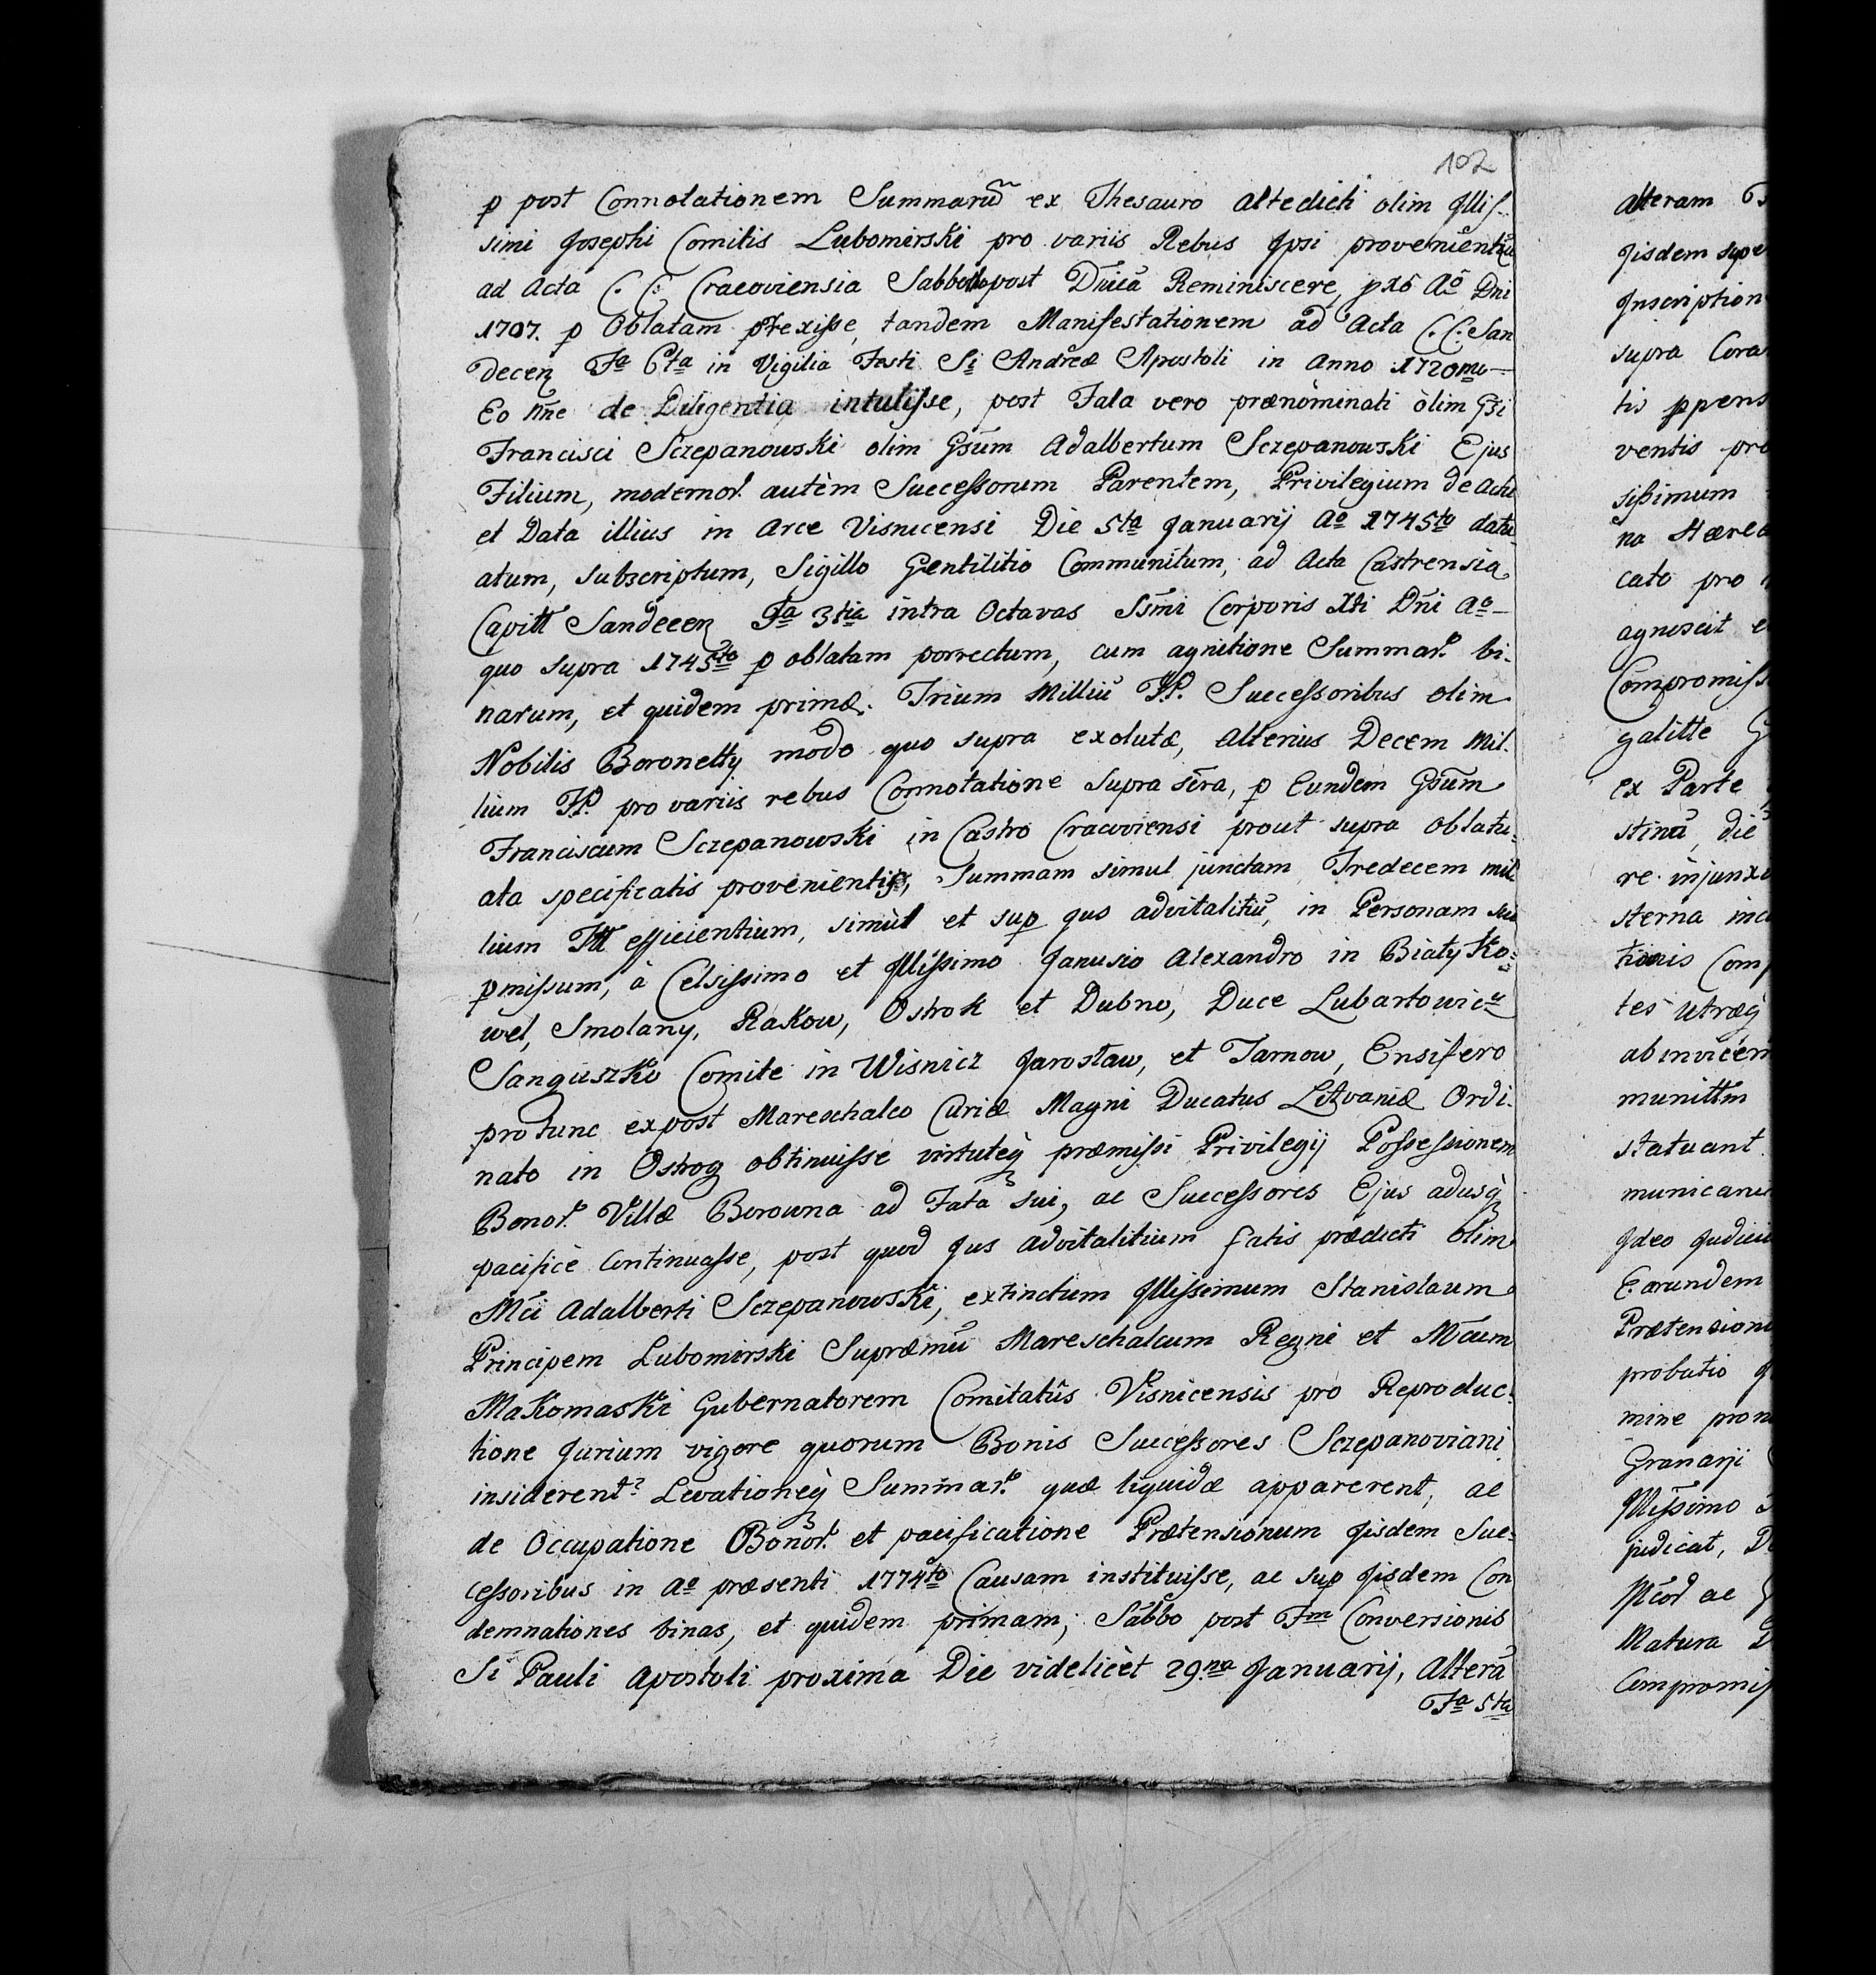 102
p post Connotationem Summarũ ex Thesauro altedicti olim Jllis-
simi Josephi Comitis Lubomirski pro variis Rebus Jpsi provenientiũ
ad Acta C. C. Cracoviensia Sabbatho post Dnicã Reminiscere, pxõ Aõ Dni
1707. p Oblatam porrexisse, tandem Manifestationem ad Acta C. C. San
decen Fa 6ta in Vigilia Festi Si Andreæ Apostoli in Anno 1720mo
Eo nñe de Diligentia intulisse, post Fata vero prænòminati òlim Gsi
Francisci Sczepanowski olim Gsũm Adalbertum Sczepanowski Ejus
Filium, modernor. autèm Successorum Parentem, Privilegium de Actu
et Data illius in Arce Visnicensi Die 5ta Januarij Ao 1745to datu-
atum, subscriptum, Sigillo Gentilitio Communitum, ad Acta Castrensia
Capitt Sandecen Fa 3tia intra Octavas Ssmi Corporis Xti Dñi Ao
quo supra 1745to p oblatam porrectum, cum agnitione Summar. bi-
narum, et quidem primæ. Trium Milliũ FP. Successoribus olim
Nobilis Boronetty modo quo supra exolutæ, Alterius Decem Mil-
lium FP. pro variis rebus Connotatione supra scra, p Eundem Gsũm
Franciscum Sczepanowski in Castro Cracoviensi prout supra oblatu-
ata specificatis provenientis, Summam simul junctam Tredecem mil
lium Fttt efficientium, simùl et sup quo advitalitiũ, in Personam sui
pmissum, à Celsissimo et Jllissimo Janusio Alexandro in Biały Ko-
wel, Smolany, Rakow, Ostrok et Dubno, Duce Lubartowicz
Sanguszko Comite in Wisnicz Jarosław, et Tarnow, Ensifero
pro tunc expost Mareschalco Curiæ Magni Ducatus Litvaniæ Ordi-
nato in Ostrog obtinuisse virtuteq præmissi Privilegij Possessionem
Bonor. Villæ Borowna ad Fata sui, ac Successores Ejus adusq
pacificè Continuasse, post quod Jus advitalitium fatis prædicti olim
Mci Adalberti Sczepanowski, extinctum Jllissimum Stanislaum
Principem Lubomirski Supræmũ Mareschalcum Regni et Mcum
Makomaski Gubernatorem Comitatûs Visnicensis pro Reproduc-
tione Jurium vigore quorum Bonis Successores Sczepanoviani
insiderent? Levationeq Summar. quæ liquidæ apparerent, ac
de Occupatione Bonor. et pacificatione Prætensionum Jisdem Suc-
cessoribus in Ao præsenti 1774to Causam instituisse, ac sup Jisdem Con
demnationes binas, et quidem primam; Sabbo post Fm Conversionis
Si Pauli Apostoli proxima Die videlicèt 29.na Januarij, Alterã
Fa 5ta
alteram
Jisdem
Jnscription
supra
ventis
sissimum
cato pro
agnoscit
Compromiss
ex Parte
stinũ, die
re injunx
sterna
Com
tes utræq
ab invicem
munittm
statuant
Jdeo
Earundem
Prætension
probatio
mine
Granarij
Jllissimo
judicat,
ac
Matura
Compromiss